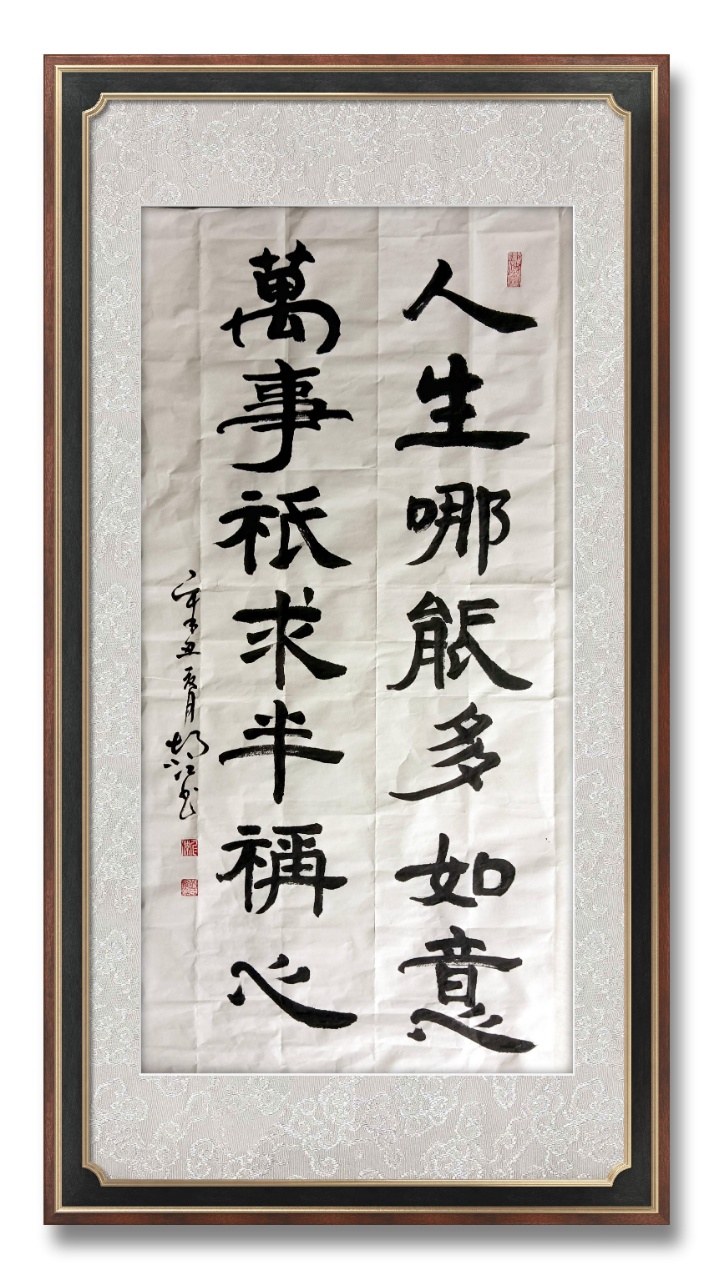 人生哪能多如意
萬事祇求半稱心
辛丑夏月 胡江书